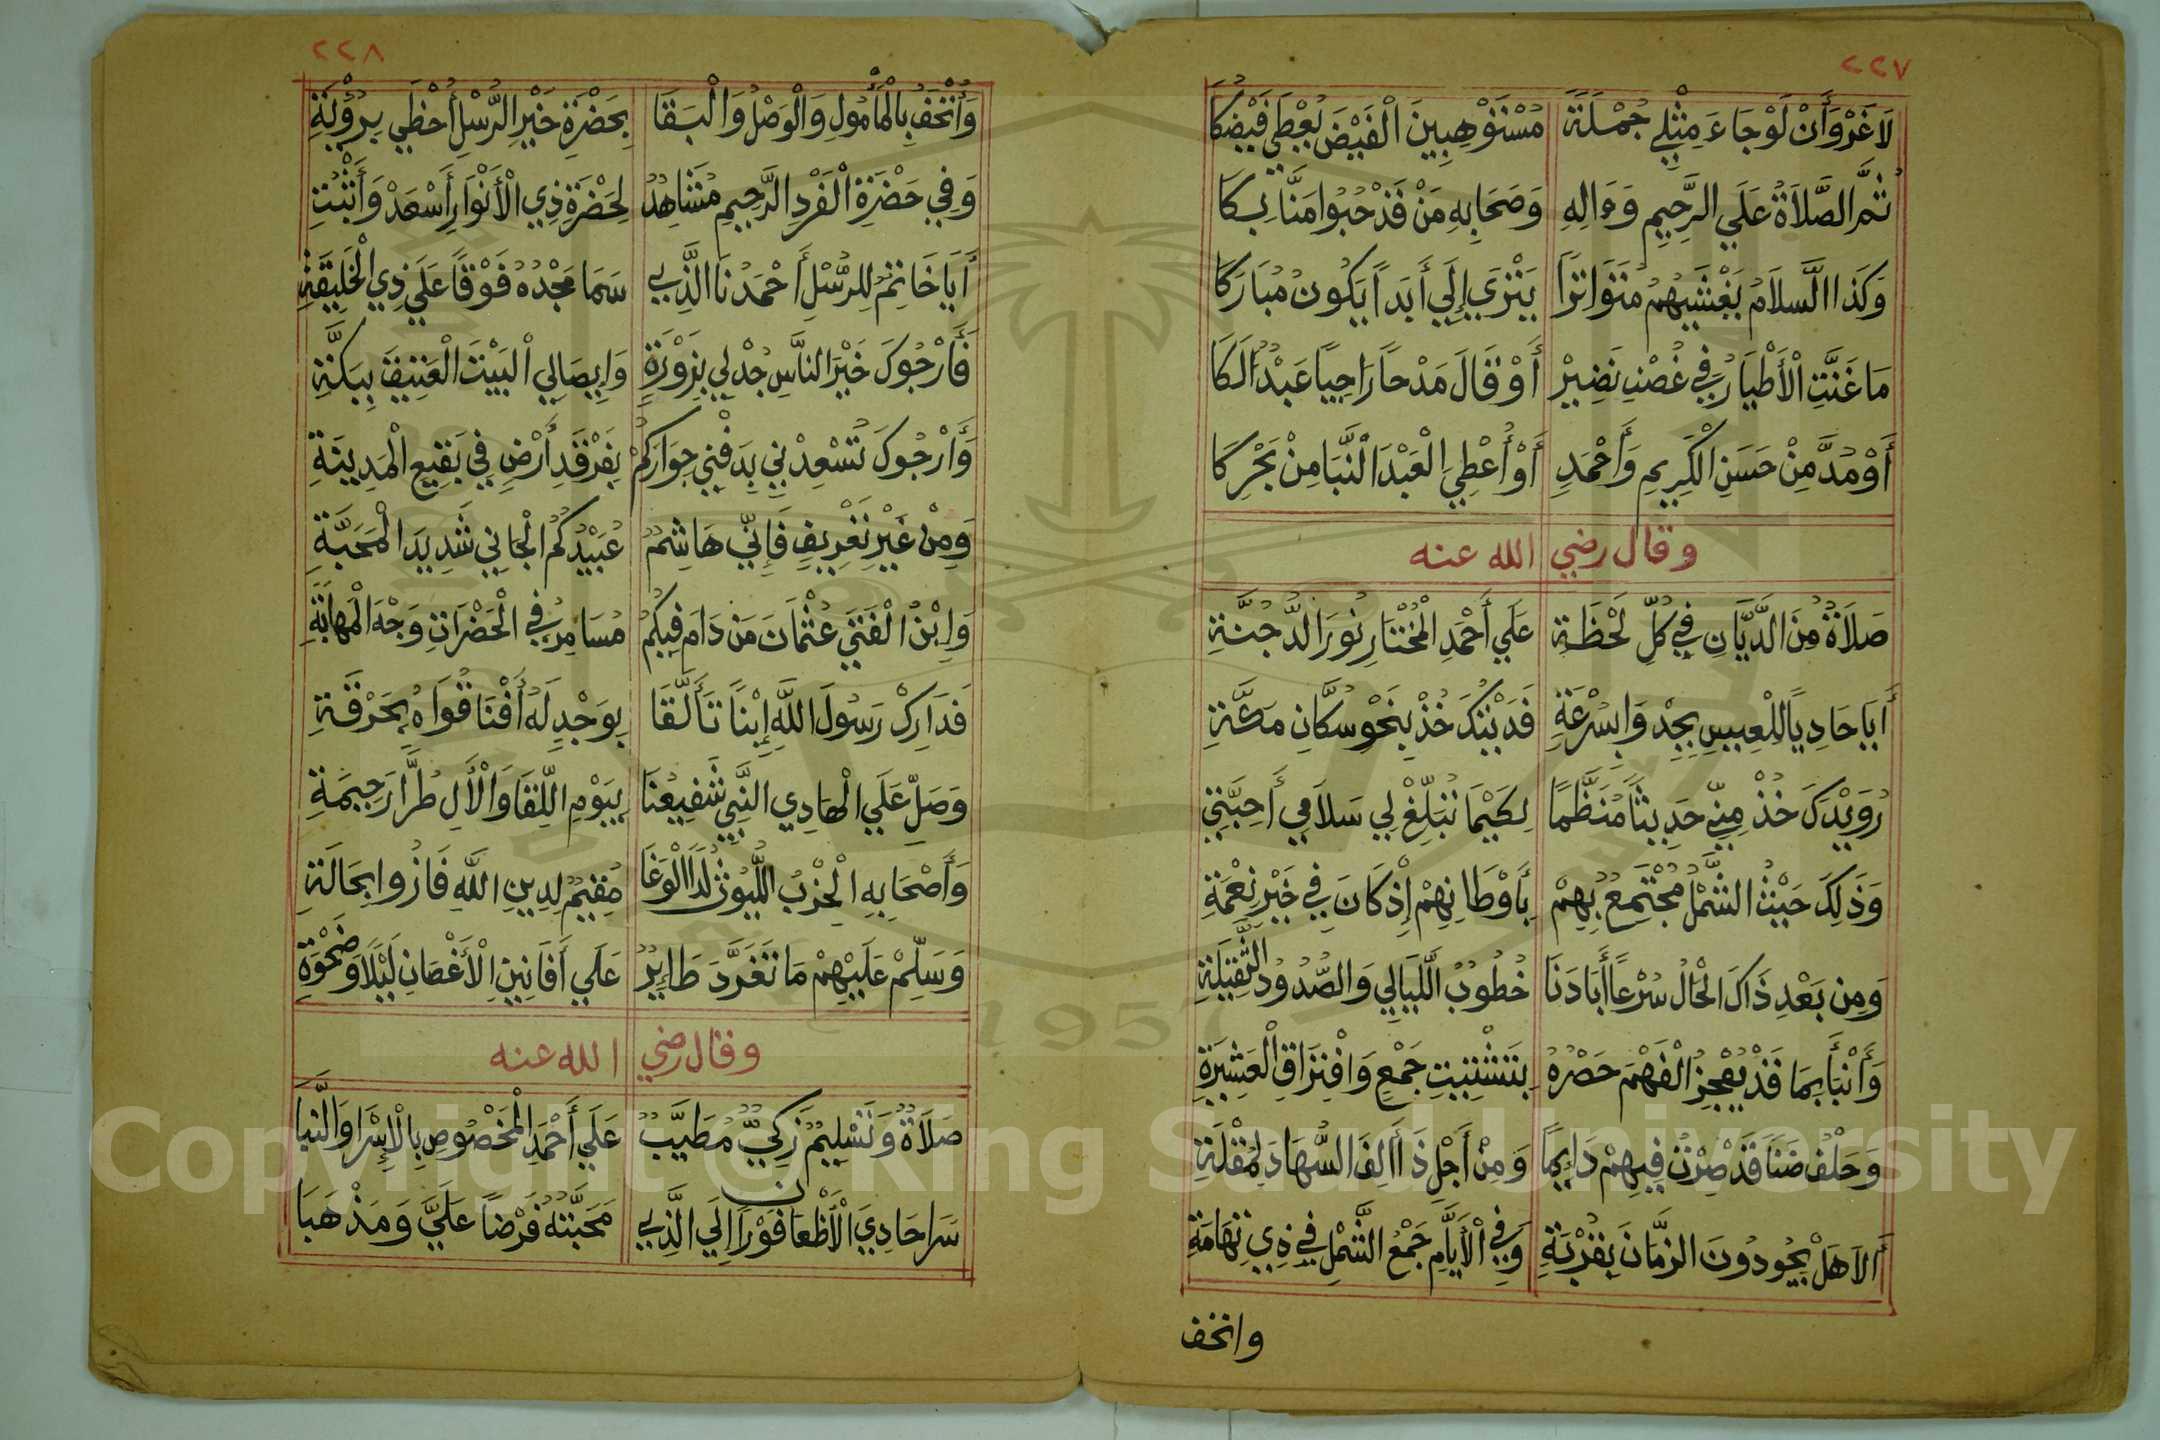 ٢٢٧
لَا غَرْوَ أَنْ لَوْ جَاءَ مِثْلِي جُمْلَةً مُسْتَوْهِبِينَ الْفَيْضَ يُعْطَي فَيْضُكَا
ثُمَّ الصَّلَاةُ عَلَي الرَّحِيمِ وَءَالِهِ وَصَحَابِهِ مَنْ قَدْ حُبُوا مَنًّا بِكَا
وَكَذَا السَّلَامُ يَغْشَيهُمُ مُتَوَاتِرًا يَتْرَي إِلَي أَبَدًا يَكُونُ مُبَارَكَا
مَا غَنَّتِ الْأَطْيَارُ فِي غُصْنٍ نَضِيرْ أَوْ قَالَ مَدْحًا رَاجِيًا عَبْدٌ لَكَا
أَوْ مُدَّ مِنْ حَسَنِ الْكَرِيمِ وَأَحْمَدِ أَوْ أُعْطِيَ الْعَبْدَ النَّبَا مِنْ بَحْرِكَا
وقال رضي الله عنه
صَلَاةٌ مِنَ الدَّيَّانِ فِي كُلِّ لَحْظَةِ عَلَي أَحْمَدِ الْمُخْتَارِ نُورِ الدُّجُنَّةِ
أَيَا حَادِيًا لِلْعِيسِ بِجِدٍ وَبِسُرْعَةِ فَدَيْتُكَ خُذْ بِنَحْوِ سُكَّانِ مَكَّةِ
رُوَيْدَكَ خُذْ مِنِّي حَدِيثًا مُنَظَّمًا لِكَيْمَا تُبَلِّغْ لِي سَلَامِي أَحِبَّتِي
وَذَلِكَ حَيْثُ الشَّمْلُ مُجْتَمِعٌ بِهِمْ بِأَوْطَانِهِمْ إِذْ كَانَ فِي خَيْرِ نِعْمَةِ
وَمِن بَعْدِ ذَاكَ الْحَالُ سُرْعًا أَبَادَنَا خُطُوبُ اللَّيَالِي وَالصُّدُودُ الثَّقِيلَةِ
وَأَنْبَا بِمَا قَدْ يُعْجِزُ الْفَهْمَ حَصْرُهُ بِتَشْتِيتِ جَمْعٍ وَافْتِرَاقِ الْعَشِيرَةِ
وَحَلْفُ ضَنًا قَدْ صِرْتُ فِيهِمْ دَايِمًا وَمِنْ أَجْلِ ذَا أَلِفَ السُّهَادَ لِمُقْلَةِ
أَلَا هَلْ يَجُودُونَ الزَّمَانَ بِقُرْبَةِ وَفِي الْأَيَّامِ جَمْعُ الشَّمْلِ فِي ذِي تِهَامَةِ
واتحف
٢٢٨
وَأُتْحَفُ بِالْمَأْمُولِ وَالْوَصْلُ وَالْبَقَا بِحَضْرَةِ خَيْرِ الرُّسْلِ أُحْظَي بِرُؤْيَةِ
وَفِي حَضْرَةِ الْفَرْدِ الرَّحِيمِ مُشَاهِدٌ لِحَضْرَةِ ذِي الْأَنْوَارِ أَسْعَدْ وَأُثْبُتِ
أَيَا خَاتِمٌ لِلرُّسْلِ أَحْمَدُنَا الَّذِي سَمَا مَجْدُهُ فَوْقًا عَلَي ذِي الْخَلِيقَةِ
فَأَرْجُوكَ خَيْرَ النَّاسِ جُدْ لِي بِزَوْرَةٍ وَإِيصَالِي الْبَيْتَ الْعَتِيقَ بِبَكَّةِ
وَأَرْجُوكَ تُسْعِدْنِي بِدَفْنِي جِوَارَكُمْ بِفَرْقَدِ أَرْضٍ فِي بَقِيعِ الْمَدِينَةِ
وَمِنْ غَيْرِ تَعْرِيفٍ فَإِنِّي هَاشِمٌ عُبَيْدُكُمُ الْجَانِي شَدِيدَ الْمَحَبَّةِ
وَابْنُ الْفَتَي عُثْمَانَ مَن دَامَ فِيكُمُ مُسَامِرٌ فِي الْحَضْرَاتِ وَجْهَ الْمَهَابَةِ
فَدَارِكْ رَسُولَ اللَّهِ إِبْنًا تَأَلَّقَا بِوَجْدٍ لَهُ أَفْنَا قُوَاهُ بِحَرْقَةِ
وَصَلِّ عَلَي الْهَادِي النَّبِي شَفِيعُنَا بِيَوْمِ اللِّقَا وَالْأَلِ طُرًّا رَحِيمَةِ
وَأَصْحَابِهِ الْحِزْبُ اللُّيُوثُ لَدَا الْوَغَا مُقِيمٌ لِدِينِ اللَّهِ فَازُوا بِحَالَةِ
وَسَلِّمْ عَلَيْهِمْ مَا تَغَرَّدَ طَايِرٌ عَلَي أَفَانِينِ الْأَغْصَانِ لَيْلًا وَضَحْوَةِ
وقال رضي الله عنه
صَلَاةٌ وَتَسْلِيمٌ زَكِيٌّ مُطَيَّبٌ عَلَي أَحْمَدِ الْمَخْصُوصِ بِالْإِسْرَا وَالنَّبَا
سَرَا حَادِيَ الْأَظْعَانِ فَوْرًا إِلَي الَّذِي مَحَبَّتُهُ فَرْضًا عَلَيَّ وَمَذْهَبَا
1957
Copyright © King Saud University